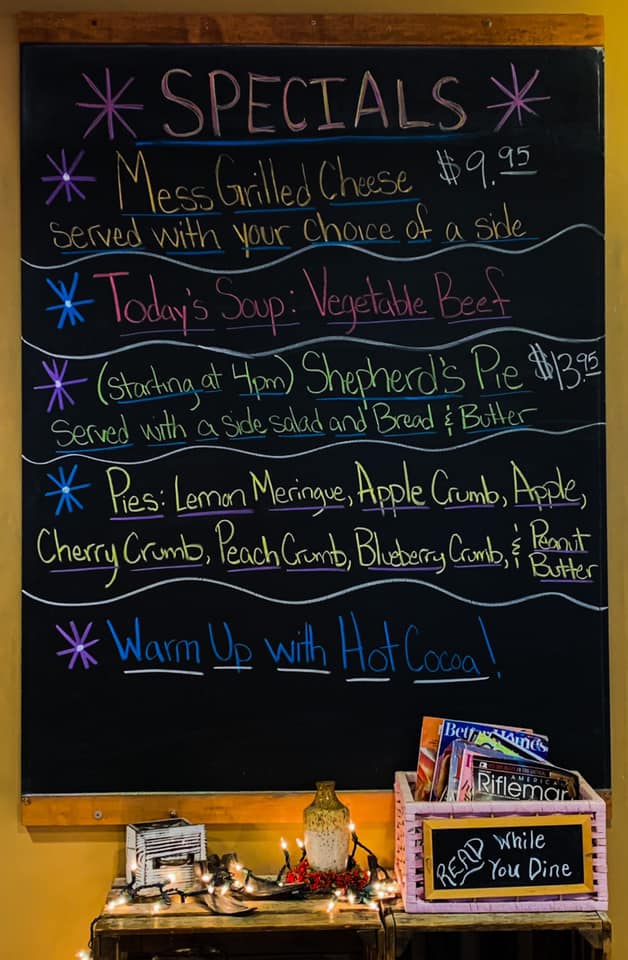 SPECIALS
Mess Grilled Cheese $9.95
served with your choice of a side
Today's Soup: Vegetable Beef
(starting at 4pm) Shepherd's Pie $13.95
Served with a side salad and Bread & Butter
Pies: Lemon Meringue, Apple Crumb, Apple,
Cherry Crumb, Peach Crumb, Blueberry Crumb, & Peanut
Butter
Warm Up with Hot Cocoa!
AMERICAN
Rifleman
READ While
You Dine